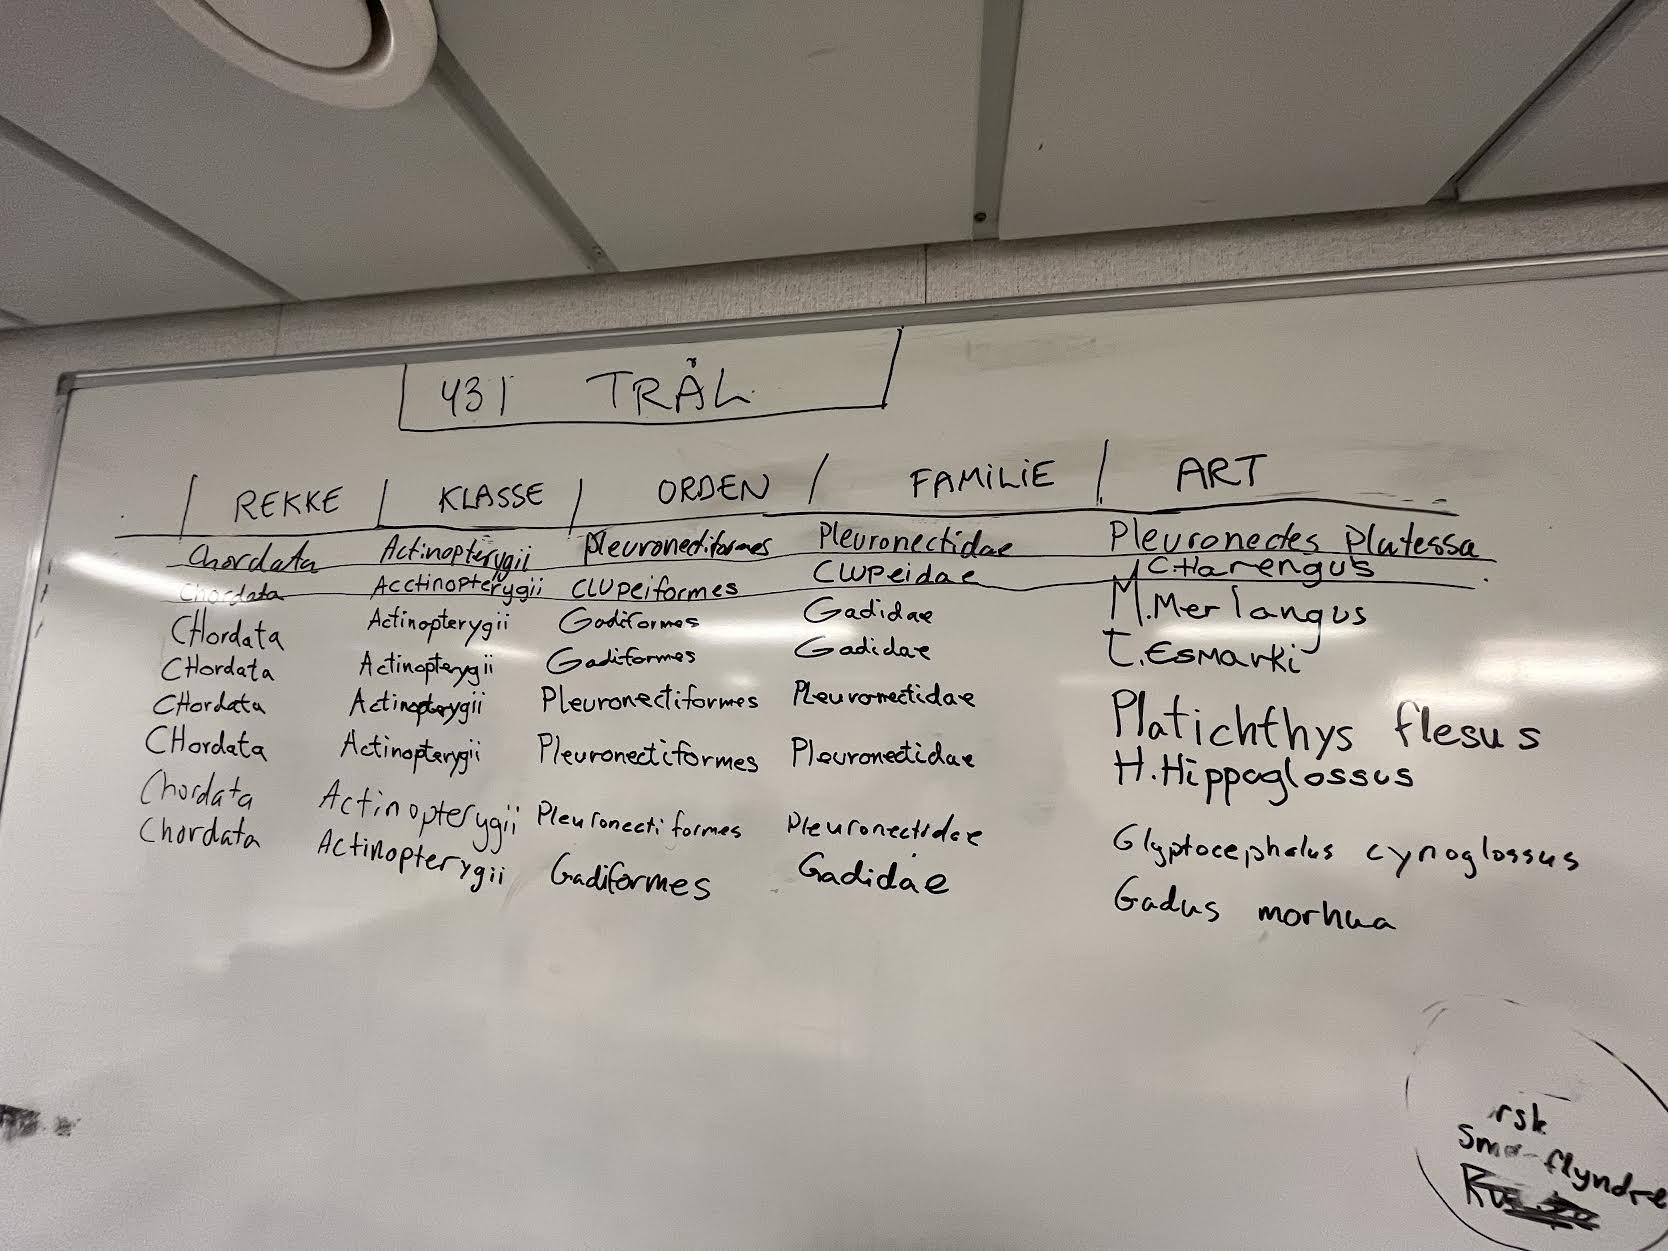 431 TRÅL
REKKE KLASSE ORDEN FAMILIE ART
Chordata Actinopterygii Pleuronectiformes Pleuronectidae Pleuronectes Platessa
Chordata Acctinopterygii CLUPEiformes CLUPEidae C.Harengus
CHordata Actinopterygii Gadiformes Gadidae M.Merlangus
CHordata Actinopterygii Gadiformes Gadidae T.EsMarki
CHordata Actinopterygii Pleuronectiformes Pleuronectidae Platichthys flesus
CHordata Actinopterygii Pleuronectiformes Pleuronectidae H.Hippoglossus
Chordata Actinopterygii Pleuronectiformes Pleuronectidae Glyptocephalus cynoglossus
Chordata Actinopterygii Gadiformes Gadidae Gadus morhua
rsk
Smø-flyndre